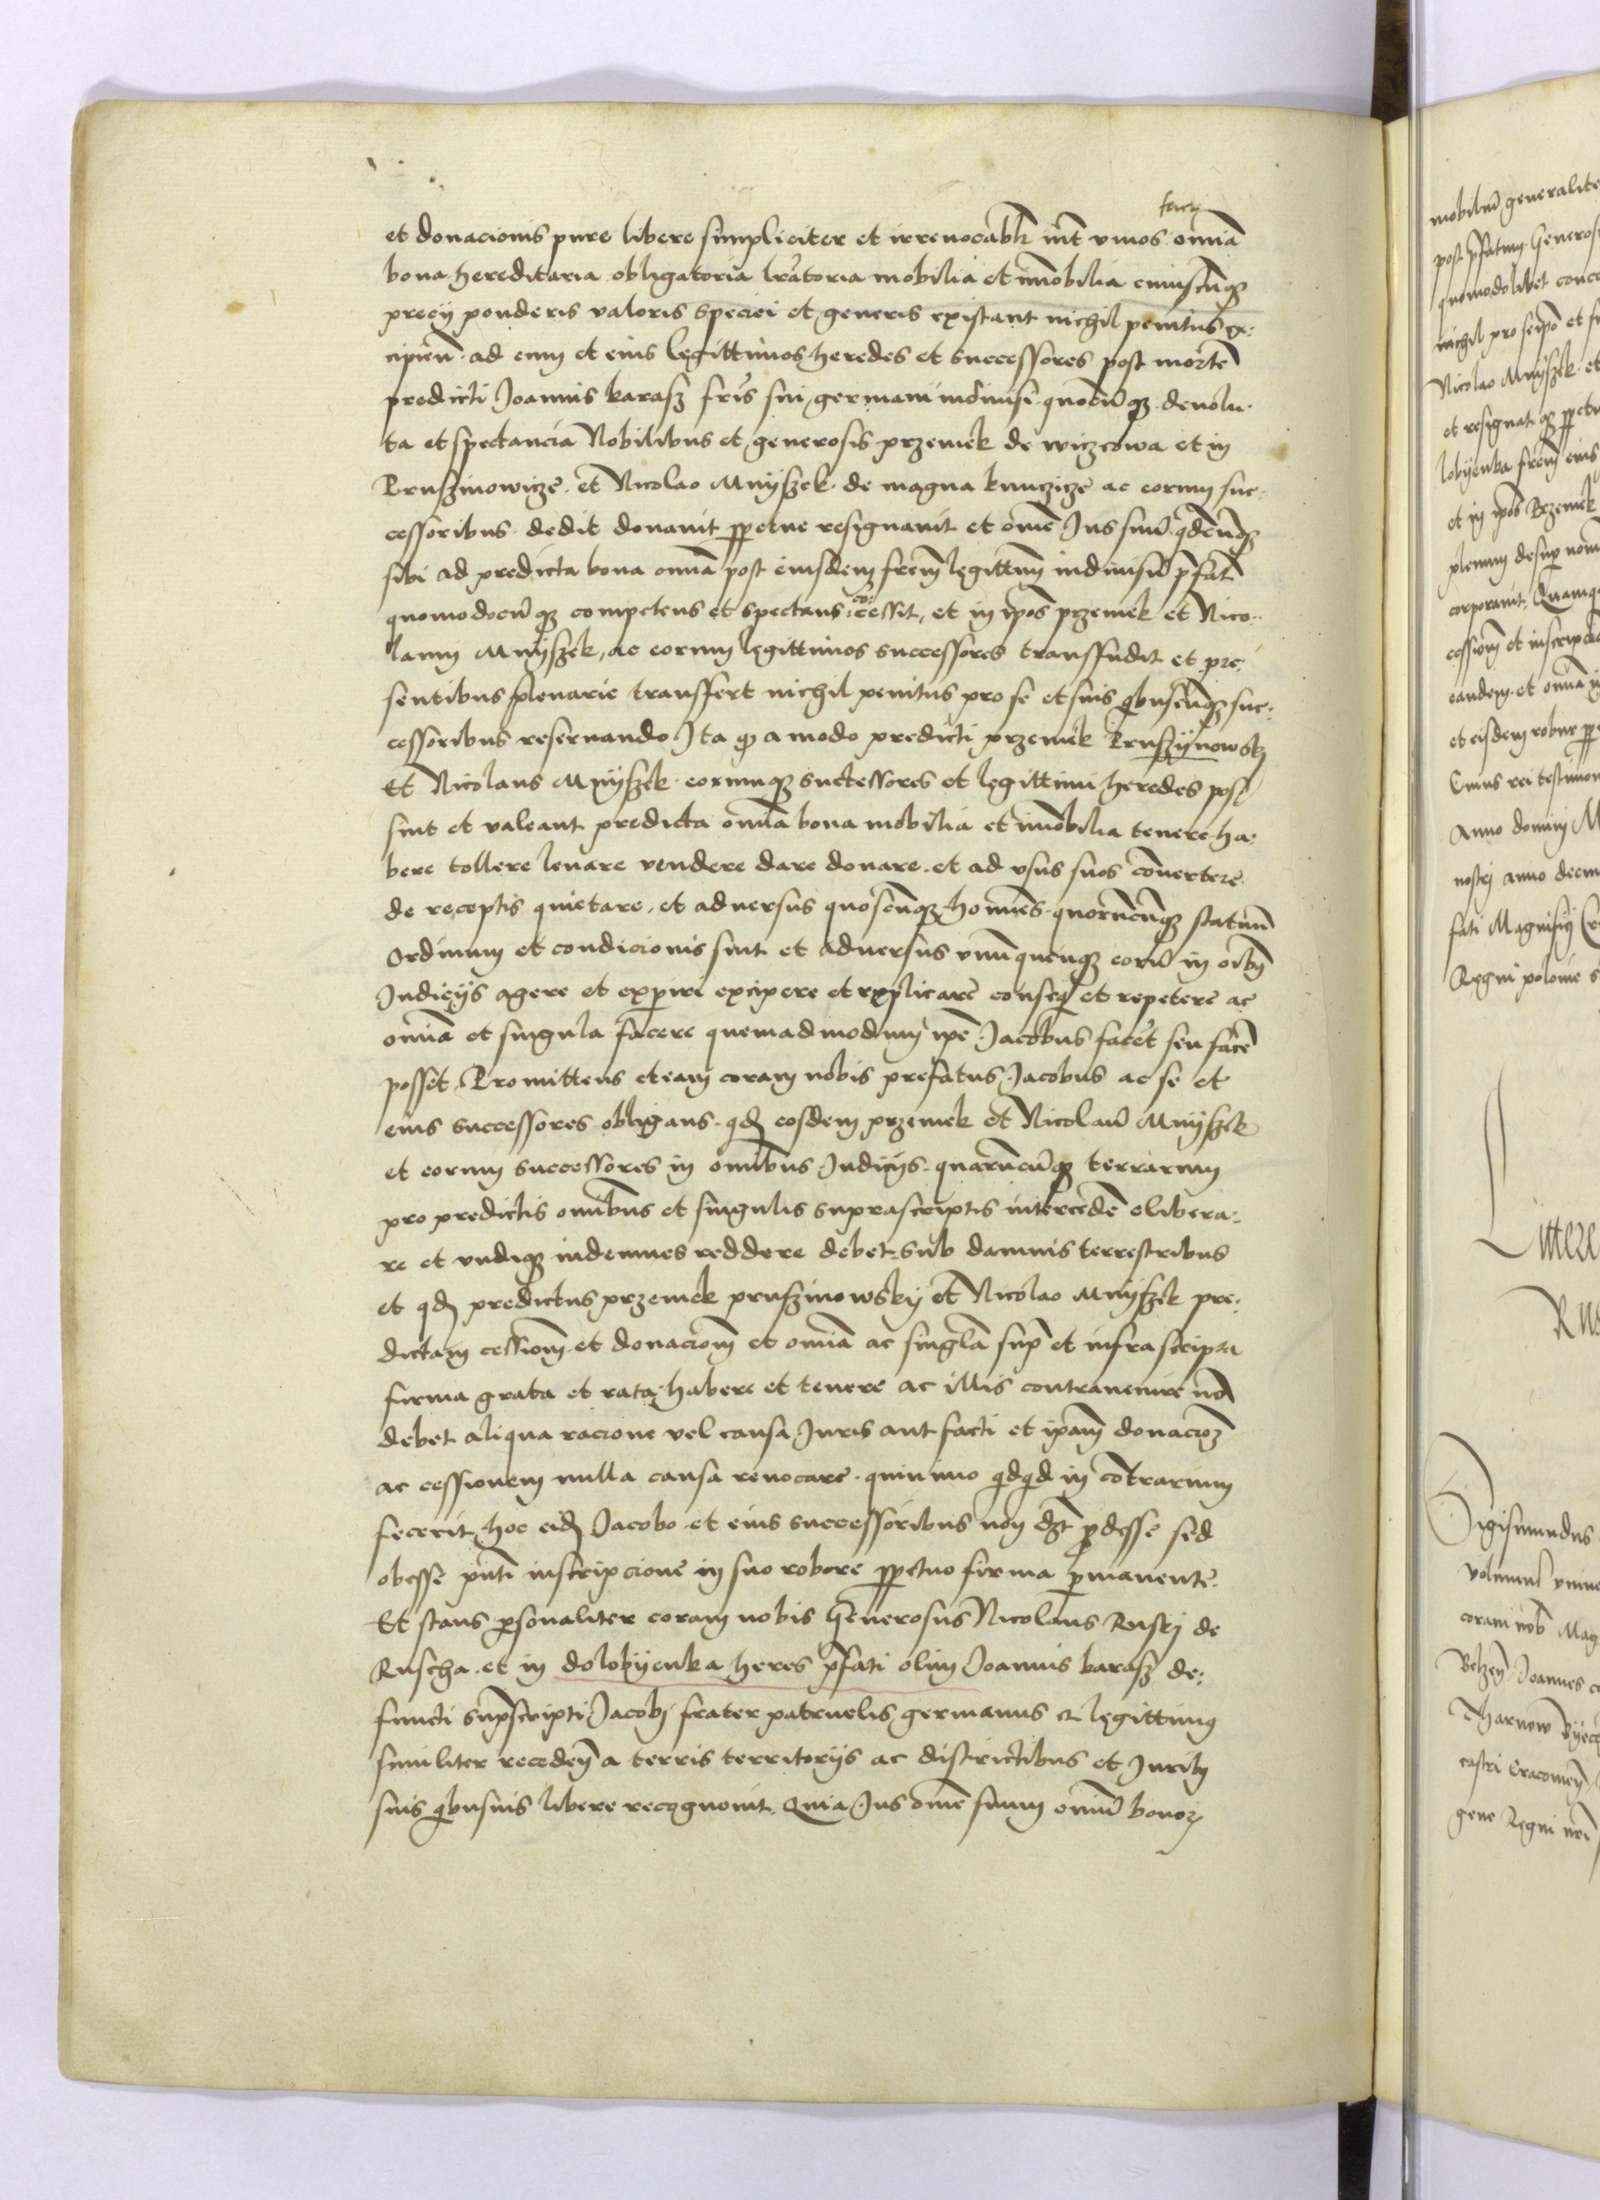 facti
et donacionis pure libere simpliciter et irrevocabl inter vivos omia
bona hereditaria obligatoria lratoria mobilia et imobilia cuiuscuq
precij ponderis valoris speciei et generis existant nichil penitus ex:
cipien ad eum et eius legittimos heredes et successores post morte
predicti Joannis karasz fris sui germani indiuisi quocuq deuolu
ta et spectancia Nobilibus et generosis przemek de wiczcowa et in
Pruszinowicze et Nicolao Mnyszek de magna kunczicze ac eorum suc:
cessoribus dedit donauit ppetue resignauit et ome Jus suu qdcuq
sibi ad predicta bona omia post eiusdem frem legittim indiuisu pfat
quomodocuq competens et spectans cocessit, et in ipos przemek et Nico
laum Mnyszek, ac eorum legittimos successores transfudit et pre:
sentibus plenarie transfert nichil penitus pro se et suis qbuscuq suc:
cessoribus reseruando Ita q a modo predicti przemek Pruszynowsky
Et Nicolaus Mnyszek eorumq successores et legittimi heredes pos
sint et valeant predicta omia bona mobilia et imobilia tenere ha:
bere tollere leuare vendere dare donare et ad vsus suos couertere
de receptis quietare, et aduersus quoscuq homines quorucuq statuu
Ordinum et condicionis sint et aduersus vnuquenq eoru in oibus
Judicijs agere et experiri excipere et replicare conseq et repetere ac
omia et singula facere quemadmodum ipe Jacobus facet seu face
posset Promittens eteam coram nobis prefatus Jacobus ac se et
eius successores obligans qd eosdem przemek et Nicolau Mnyszek
et eorum successores in omibus Judicijs quarucuq terrarum
pro predictis omibus et singulis suprascriptis intercede elibera:
re et vndiq indemnes reddere debet sub damnis terrestribus
et qd predictus przemek pruszinowsky et Nicolao Mnyszek pre:
dictam cessiom et donaciom et omia ac singla sup et infrascripta
firma grata et rata habere et tenere ac illis contrauenire no
debet aliqua racione vel causa Juris aut facti et ipam donacioz
ac cessionem nulla causa reuocare quinimo qdqd in cotrarium
fecerit hoc eid Jacobo et eius successoribus non dzt pdesse sed
obesse pnti inscripcione in suo robore ppetuo firma pmanente
Et stans psonaliter coram nobis Generosus Nicolaus Rusky de
Ruscha et in dolobyenka heres pfati olim Joannis karasz de:
functi supscripti Jacobi frater patruelis germanus et legittimus
similiter receden a terris territorijs ac districtibus et Juribus
suis qbusuis libere recognouit Quia Jus ome suum omiu bonor
mobiliu generalite
post pfatum Generos
quomodolibet conce
nichil pro seipo et s
Nicolao Mnyszek et
et resignat q ppetu
lobyenka frem eius
et in ipos Przemek
plenum desup nom
corporauit Quamq
cessiom et inscripcio
eandem et omia in
et eisdem robur pp
Cuius rei testimon
Anno domini M
nostri anno decim
fati Magnificj
Regni polonie s
Littere
Rus
Sigismundus
volumus vniue
coram nob Mag
Belzen Joannes c
Tharnow Byecz
castri Cracouien
gene Regni nri